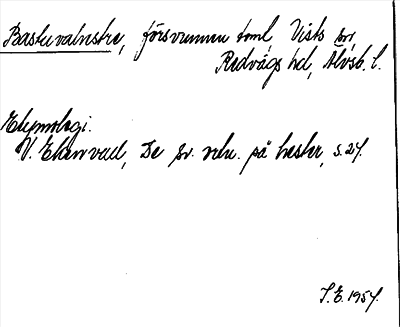 Bastuvalnstre, försvunnen toml, Vists sn,
Redvägs hd, Älvsb. l.
Etymologi.
V. Ekenvall, De sv. seln. på hester, s. 27.
I.E. 1957.